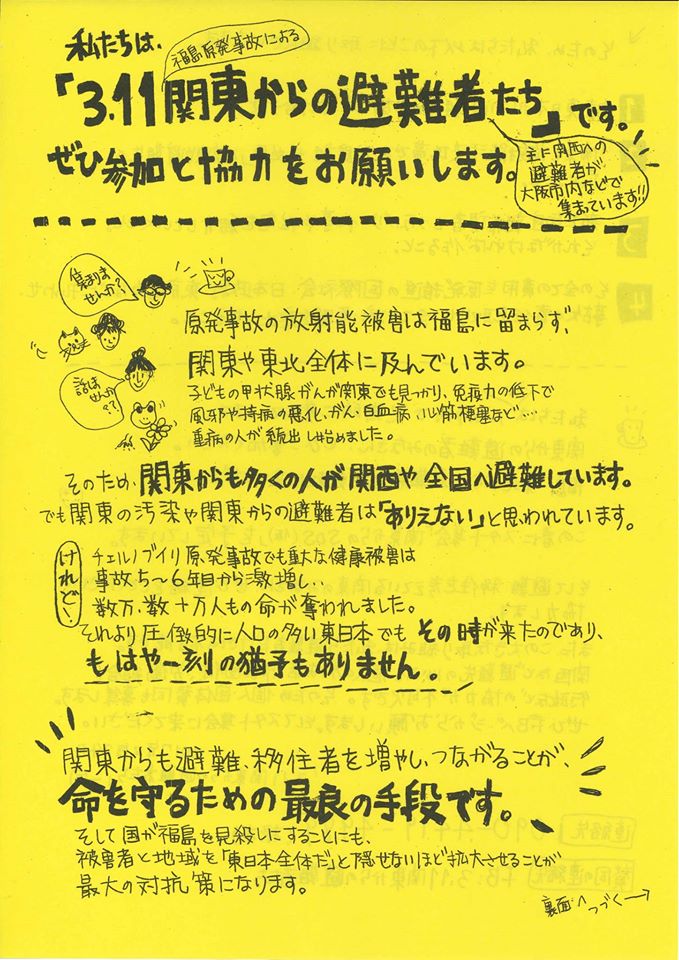 私たちは、
福島原発事故による
「3.11関東からの避難者たち」です。
ぜひ参加と協力をお願いします。
主に関西への
避難者が
大阪市内などで
集まっています!!
集まりま
せんか?
原発事故の放射能被害は福島に留まらず、
関東や東北全体に及んでいます。
話は
子どもの甲状腺がんが関東でも見つかり、免疫力の低下で
風邪や持病の悪化、がん、白血病、心筋梗塞など…
重病の人が続出し始めました。
そのため、関東からも多くの人が関西や全国へ避難しています。
でも関東の汚染や関東からの避難者は「ありえない」と思われています。
けれど…
チェルノブイリ原発事故でも重大な健康被害は
事故5~6年目から激増し、
数万、数十万人もの命が奪われました。
それより圧倒的に人口の多い東日本でもその時が来たのであり、
もはや一刻の猶予もありません。
関東からも避難、移住者を増やしつながることが、
命を守るための最良の手段です。
そして国が福島を見殺しにすることにも、
被害者と地域を「東日本全体だ」と隠せないほど拡大させることが
最大の対抗策になります。
裏面へつづく→